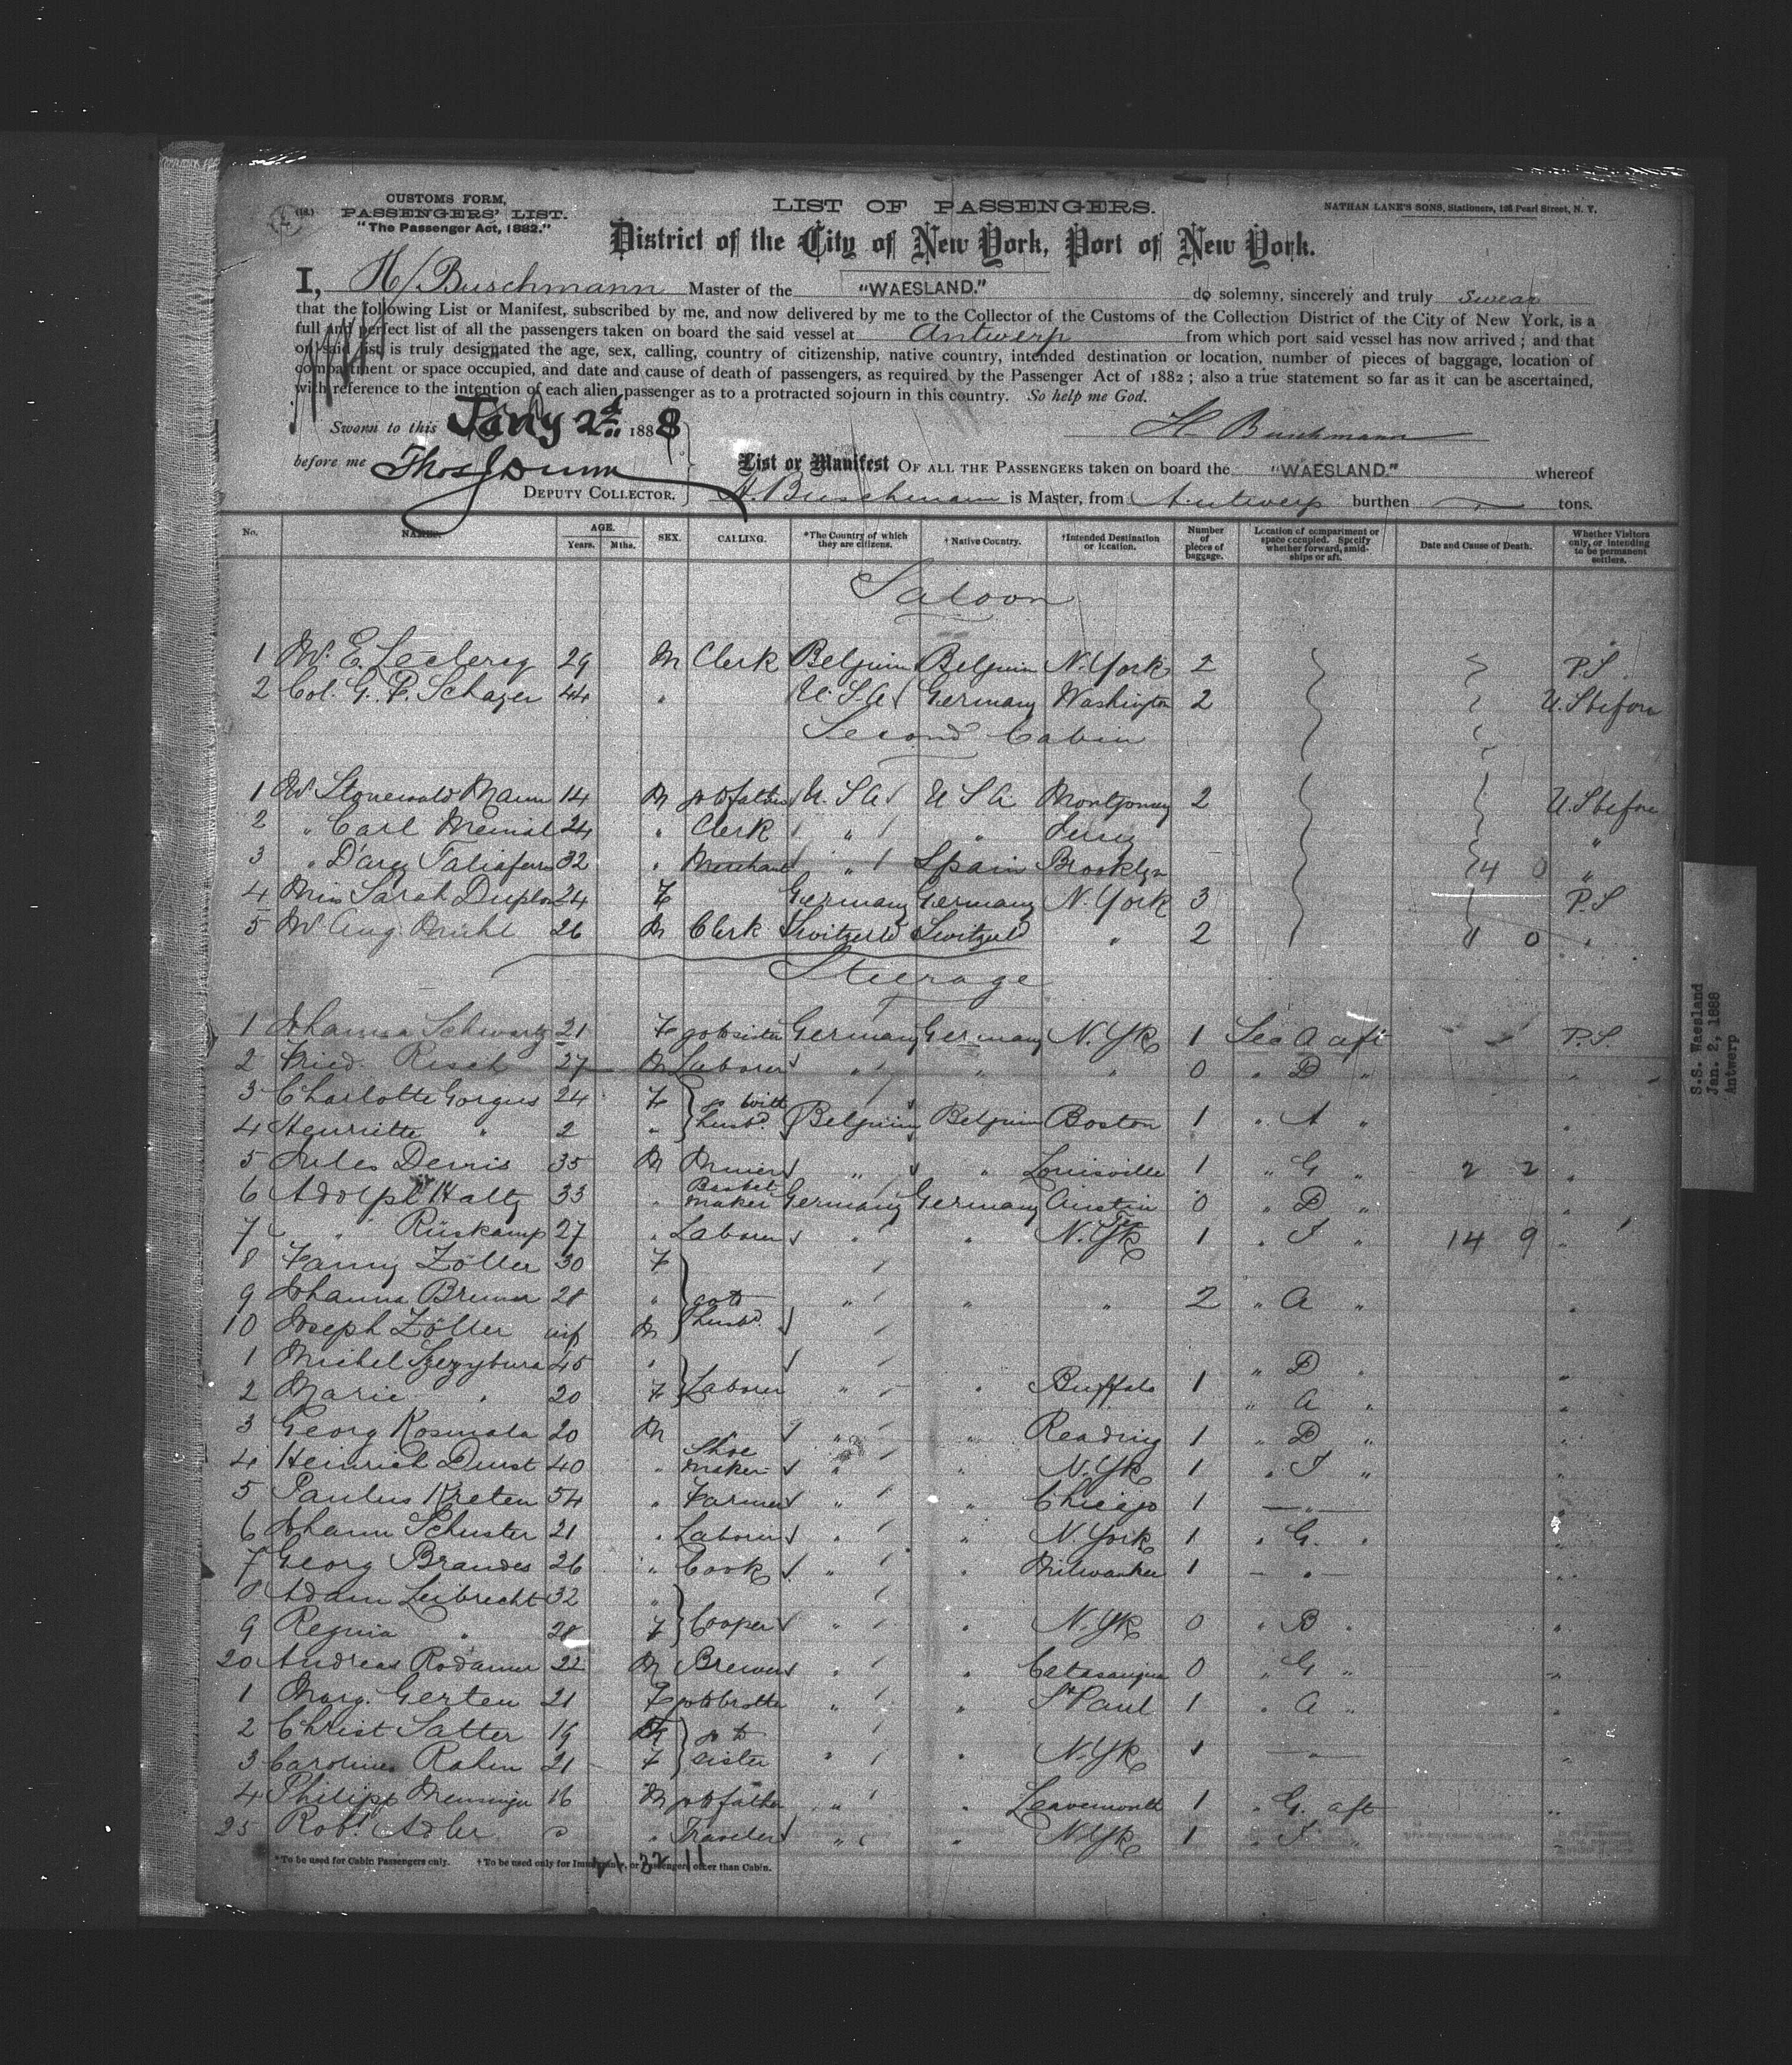 CUSTOMS FORM,
PASSENGERS' LIST.
"The Passenger Act, 1882."
LIST OF PASSENGERS.
NATHAN LANE'S SONS, Stationers, 126 Pearl Street, N. Y.
District of the City of New York, Port of New York.
I, H. Buschmann Master of the "WAESLAND." do solemny, sincerely and truly swear
that the following List or Manifest, subscribed by me, and now delivered by me to the Collector of the Customs of the Collection District of the City of New York, is a
full and perfect list of all the passengers taken on board the said vessel at Antwerp from which port said vessel has now arrived; and that
on said list is truly designated the age, sex, calling, country of citizenship, native country, intended destination or location, number of pieces of baggage, location of
compartment or space occupied, and date and cause of death of passengers, as required by the Passenger Act of 1882; also a true statement so far as it can be ascertained,
with reference to the intention of each alien passenger as to a protracted sojourn in this country. So help me God.
Sworn to this Jany 2d 1888
H. Buschmann
before me Thos J Dunn
DEPUTY COLLECTOR.
List or Manifest OF ALL THE PASSENGERS taken on board the "WAESLAND." whereof
H. Buschmann is Master, from Antwerp burthen tons.
No. NAMES. AGE. Years. Mths. SEX. CALLING. *The Country of which they are citizens. †Native Country. †Intended Destination or location. Number of pieces of baggage. Location of compartment or space occupied. Specify whether forward, amidships or aft. Date and Cause of Death. Whether Visitors only, or intending to be permanent settlers.
Saloon
1 Mr. E. Leclercq 29 M Clerk Belgium Belgium N. York 2 P.S.
2 Col. G. P. 44 " U.S.A Germany Washington 2 U.S before
Second Cabin
1 Mr Mann 14 M go to father U.S.A U S A Montgomery 2 U.S before
2 " Carl 24 " Clerk " " Jersey "
3 " D'arcy Taliaferro 32 " Merchant " Spain Brooklyn 14 0 "
4 Miss Sarah 24 F Germany Germany N. York 3 P.S
5 Mr Aug. 26 M Clerk Switzerld Switzerld " 2 11 0 "
Steerage
1 Johanna Schwartz 21 F go to sister Germany Germany N. Yk 1 Sec A aft P.S.
2 Fried. Risch 27 M Laborer " " " 0 " D " "
3 Charlotte Gorgus 24 F go with
4 Henriette " 2 " husbd. Belgium Belgium Boston 1 " A " "
5 Jules Denis 35 M Miner " " Louisville 1 " G " 2 2 "
6 Adolph Haltz 33 " Basket maker Germany Germany Austin Tex 0 " D " "
7 " Rüskamp 27 " Laborer " " N. Yk 1 " I " 14 9 "
8 Fanny Zöller 30 F
9 Johanna Bremer 28 " go to husbd. " " " 2 " A " "
10 Joseph Zöller inf M
1 Michel 45 " " D " "
2 Marie " 20 F Laborer " " Buffalo 1 " A " "
3 Georg Kosmala 20 M " " " Reading 1 " D " "
4 Heinrich Durst 40 " Shoe maker " " N. Yk 1 " I " "
5 Paulus Kreten 54 " Farmer " " Chicago 1 " "
6 Johann Schuster 21 " Laborer " " N. York 1 " G. " "
7 Georg Brandes 26 " Cook " " Milwaukee 1 " "
8 Adam Leibrecht 32 "
9 Regina " 28 F Cooper " " N. Yk 0 " B " "
20 Andreas Rodamer 22 M Brewer " " Catasauqua 0 " G " "
1 Marg. Gerten 21 F go to brother " " St Paul 1 " A " "
2 Christ Satter 19 go to
3 Caroline Rahm 21 F sister " " N. Yk 1 " "
4 Philipp 16 M go to father " " Leavenworth 1 " G. aft "
25 Robt. Adler " Traveler " " N. Yk 1 " I " "
*To be used for Cabin Passengers only. †To be used only for Immigrants, or Passengers other than Cabin.
32 11
S.S. Waesland
Jan. 2, 1888
Antwerp